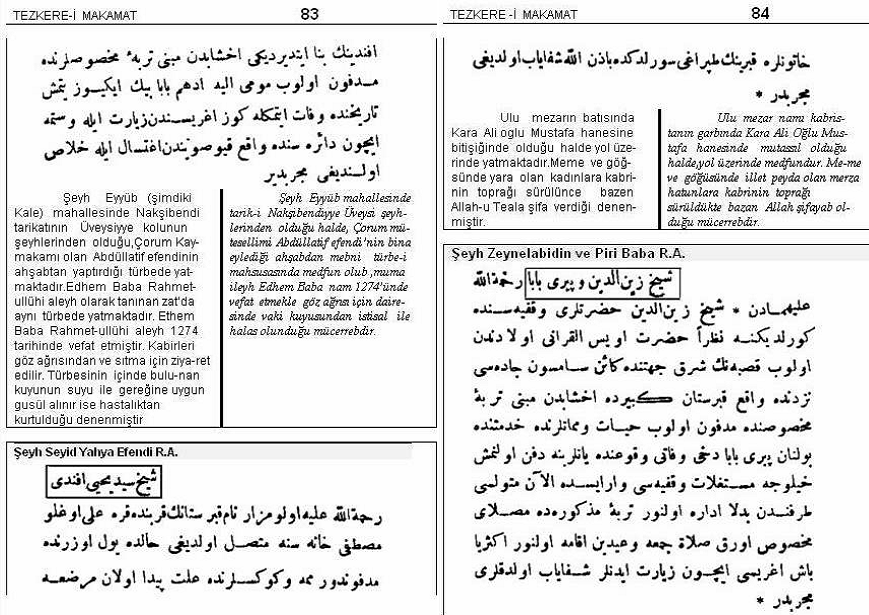 TEZKERE-İ MAKAMAT 83
افندینك بنا ایتدیردیكی اخشابدن مبنی تربهٔ مخصوصلرنده
مدفون اولوب مومی الیه ادهم بابا بیك ایكیوز یتمش
تاریخنده وفات ایتمكله كوز اغریسندن زیارت ایله وستمه
ایچون دائره سنده واقع قیوصویندن اغتسال ایله خلاص
اولندیغی مجربدیر
Şeyh Eyyüb (şimdiki
Kale) mahallesinde Nakşibendi
tarikatının Üveysiyye kolunun
şeyhlerinden olduğu,Çorum Kay-
makamı olan Abdüllatif efendinin
ahşabtan yaptırdığı türbede yat-
maktadır.Edhem Baba Rahmet-
ullühi aleyh olarak tanınan zat'da
aynı türbede yatmaktadır. Ethem
Baba Rahmet-ullühi aleyh 1274
tarihinde vefat etmiştir. Kabirleri
göz ağrısından ve sıtma için ziya-ret
edilir. Türbesinin içinde bulu-nan
kuyunun suyu ile gereğine uygun
gusül alınır ise hastalıktan
kurtulduğu denenmiştir
Şeyh Eyyüb mahallesinde
tarik-i Nakşibendiyye Üveysi şeyh-
lerinden olduğu halde, Çorum mü-
tesellimi Abdüllatif efendi'nin bina
eylediği ahşabdan mebni türbe-i
mahsusasında medfun olub ,muma
ileyh Edhem Baba nam 1274'ünde
vefat etmekle göz ağrısı için daire-
sinde vaki kuyusundan istisal ile
halas olunduğu mücerrebdir.
Şeyh Seyid Yahya Efendi R.A.
شیخ سید یحیی افندی
رحمة الله علیه اولو مزار نام قبرستانك قربنده قره علی اوغلو
مصطفی خانه سنه متصل اولدیغی حالده یول اوزرنده
مدفوندور ممه وكوكسلرنده علت پیدا اولان مرضعه
TEZKERE-İ MAKAMAT 84
خاتونلره قبرینك طپراغی سورلدكده باذن الله شفایاب اولدیغی
مجربدر *
Ulu mezarın batısında
Kara Ali oglu Mustafa hanesine
bitişiğinde olduğu halde yol üze-
rinde yatmaktadır.Meme ve göğ-
sünde yara olan kadınlara kabri-
nin toprağı sürülünce bazen
Allah-u Teala şifa verdiği denen-
miştir.
Ulu mezar namı kabris-
tanın garbında Kara Ali Oğlu Mus-
tafa hanesinde mutassıl olduğu
halde,yol üzerinde medfundur. Me-me
ve göğüsünde illet peyda olan merza
hatunlara kabrinin toprağı
sürüldükte bazan Allah şifayab ol-
duğu mücerrebdir.
Şeyh Zeynelabidin ve Piri Baba R.A.
شیخ زین الدین و پیری بابا رحمة الله
علیهمادن * شیخ زین الدین حضرتلری وقفیه سنده
كورلدیكنه نظراً حضرت اویس القرانی اولادندن
اولوب قصبه نك شرق جهتنده كائن سامسون جاده سی
نزدنده واقع قبرستان كبیرده اخشابدن مبنی تربهٔ
مخصوصنده مدفون اولوب حیات ومماتلرنده خدمتنده
بولنان پیری بابا دخی وفاتی وقوعنده یانلرینه دفن اولنمش
خیلوجه مستغلات وقفیه سی وارایسده الآن متولسی
طرفندن بدلا اداره اولنور تربهٔ مذكوره ده مصلای
مخصوص اورق صلاة جمعه وعیدین اقامه اولنور اكثریا
باش اغریسی ایچون زیارت ایدنلر شفایاب اولدقلری
مجربدر *